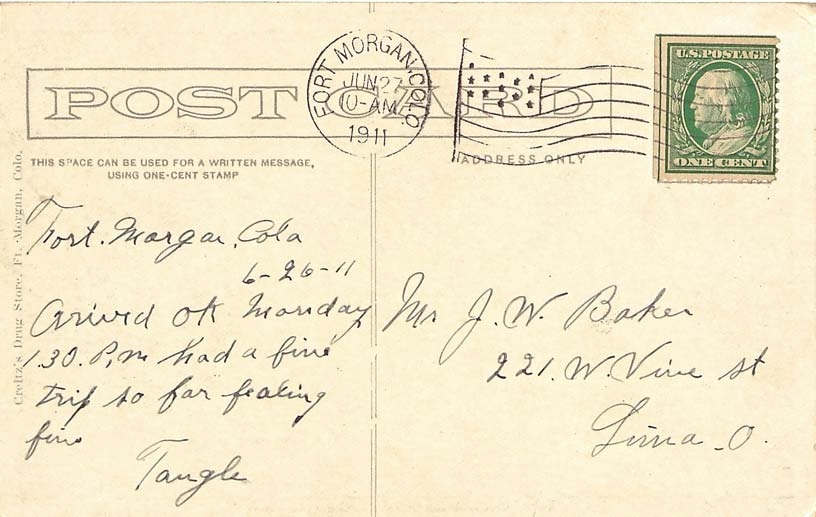 POST CARD
FORT MORGAN, COLO.
JUN 27
10-AM
1911
U.S. POSTAGE
ONE CENT
THIS SPACE CAN BE USED FOR A WRITTEN MESSAGE,
USING ONE-CENT STAMP
ADDRESS ONLY
Creltz's Drug Store, Ft. Morgan, Colo.
Fort. Morgan, Colo
6-26-11
Arrived OK Monday
1.30. P,m had a fine
trip so far fealing
fine
Tangle
Mr J. W. Baker
221. W. Vine st
Lima - O.